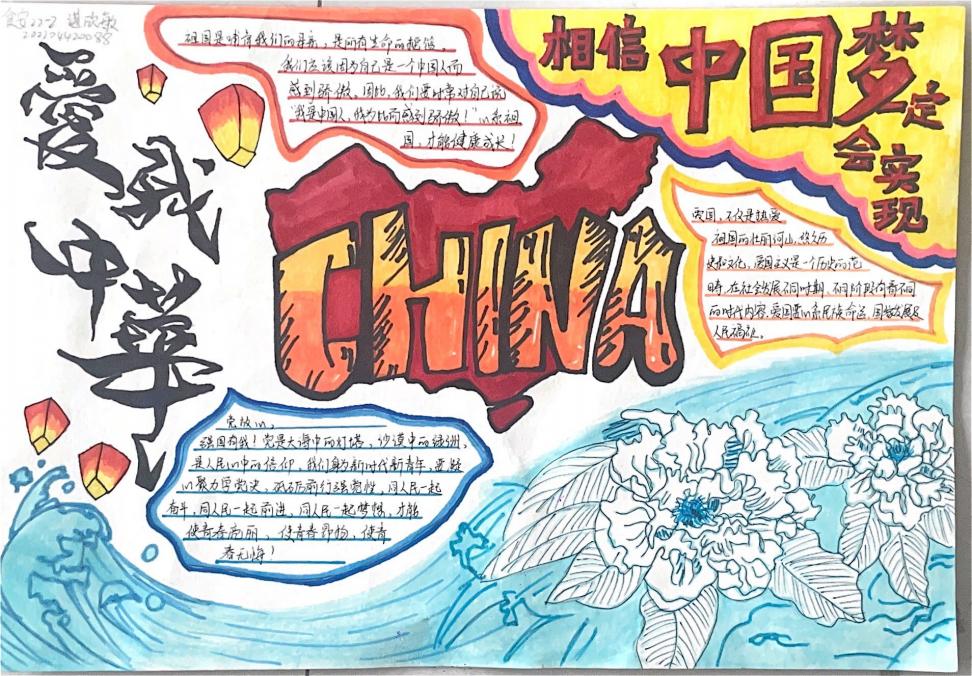 食安22-2 谌欣敏
202204420088
愛我中華
祖国是哺育我们的母亲，是所有生命的摇篮，
我们应该因为自己是一个中国人而
感到骄傲。因此，我们要时常对自己说
“我是中国人，我为此而感到骄傲！”心系祖
国，才能健康成长！
相信中国梦定
会实现
CHINA
爱国，不仅是热爱
祖国的壮丽河山、悠久历
史和文化，爱国主义是一个历史的范
畴，在社会发展不同时期、不同阶段有着不同
的时代内容。爱国是心系民族命运、国家发展及
人民福祉。
党放心，
强国有我！党是大海中的灯塔，沙漠中的绿洲，
是人民心中的信仰，我们身为新时代新青年，要
以聚力学党史，
前行强党性，同人民一起
奋斗，同人民一起前进，同人民一起梦想，才能
使青春亮丽，使青春昂扬，使青
春无悔！